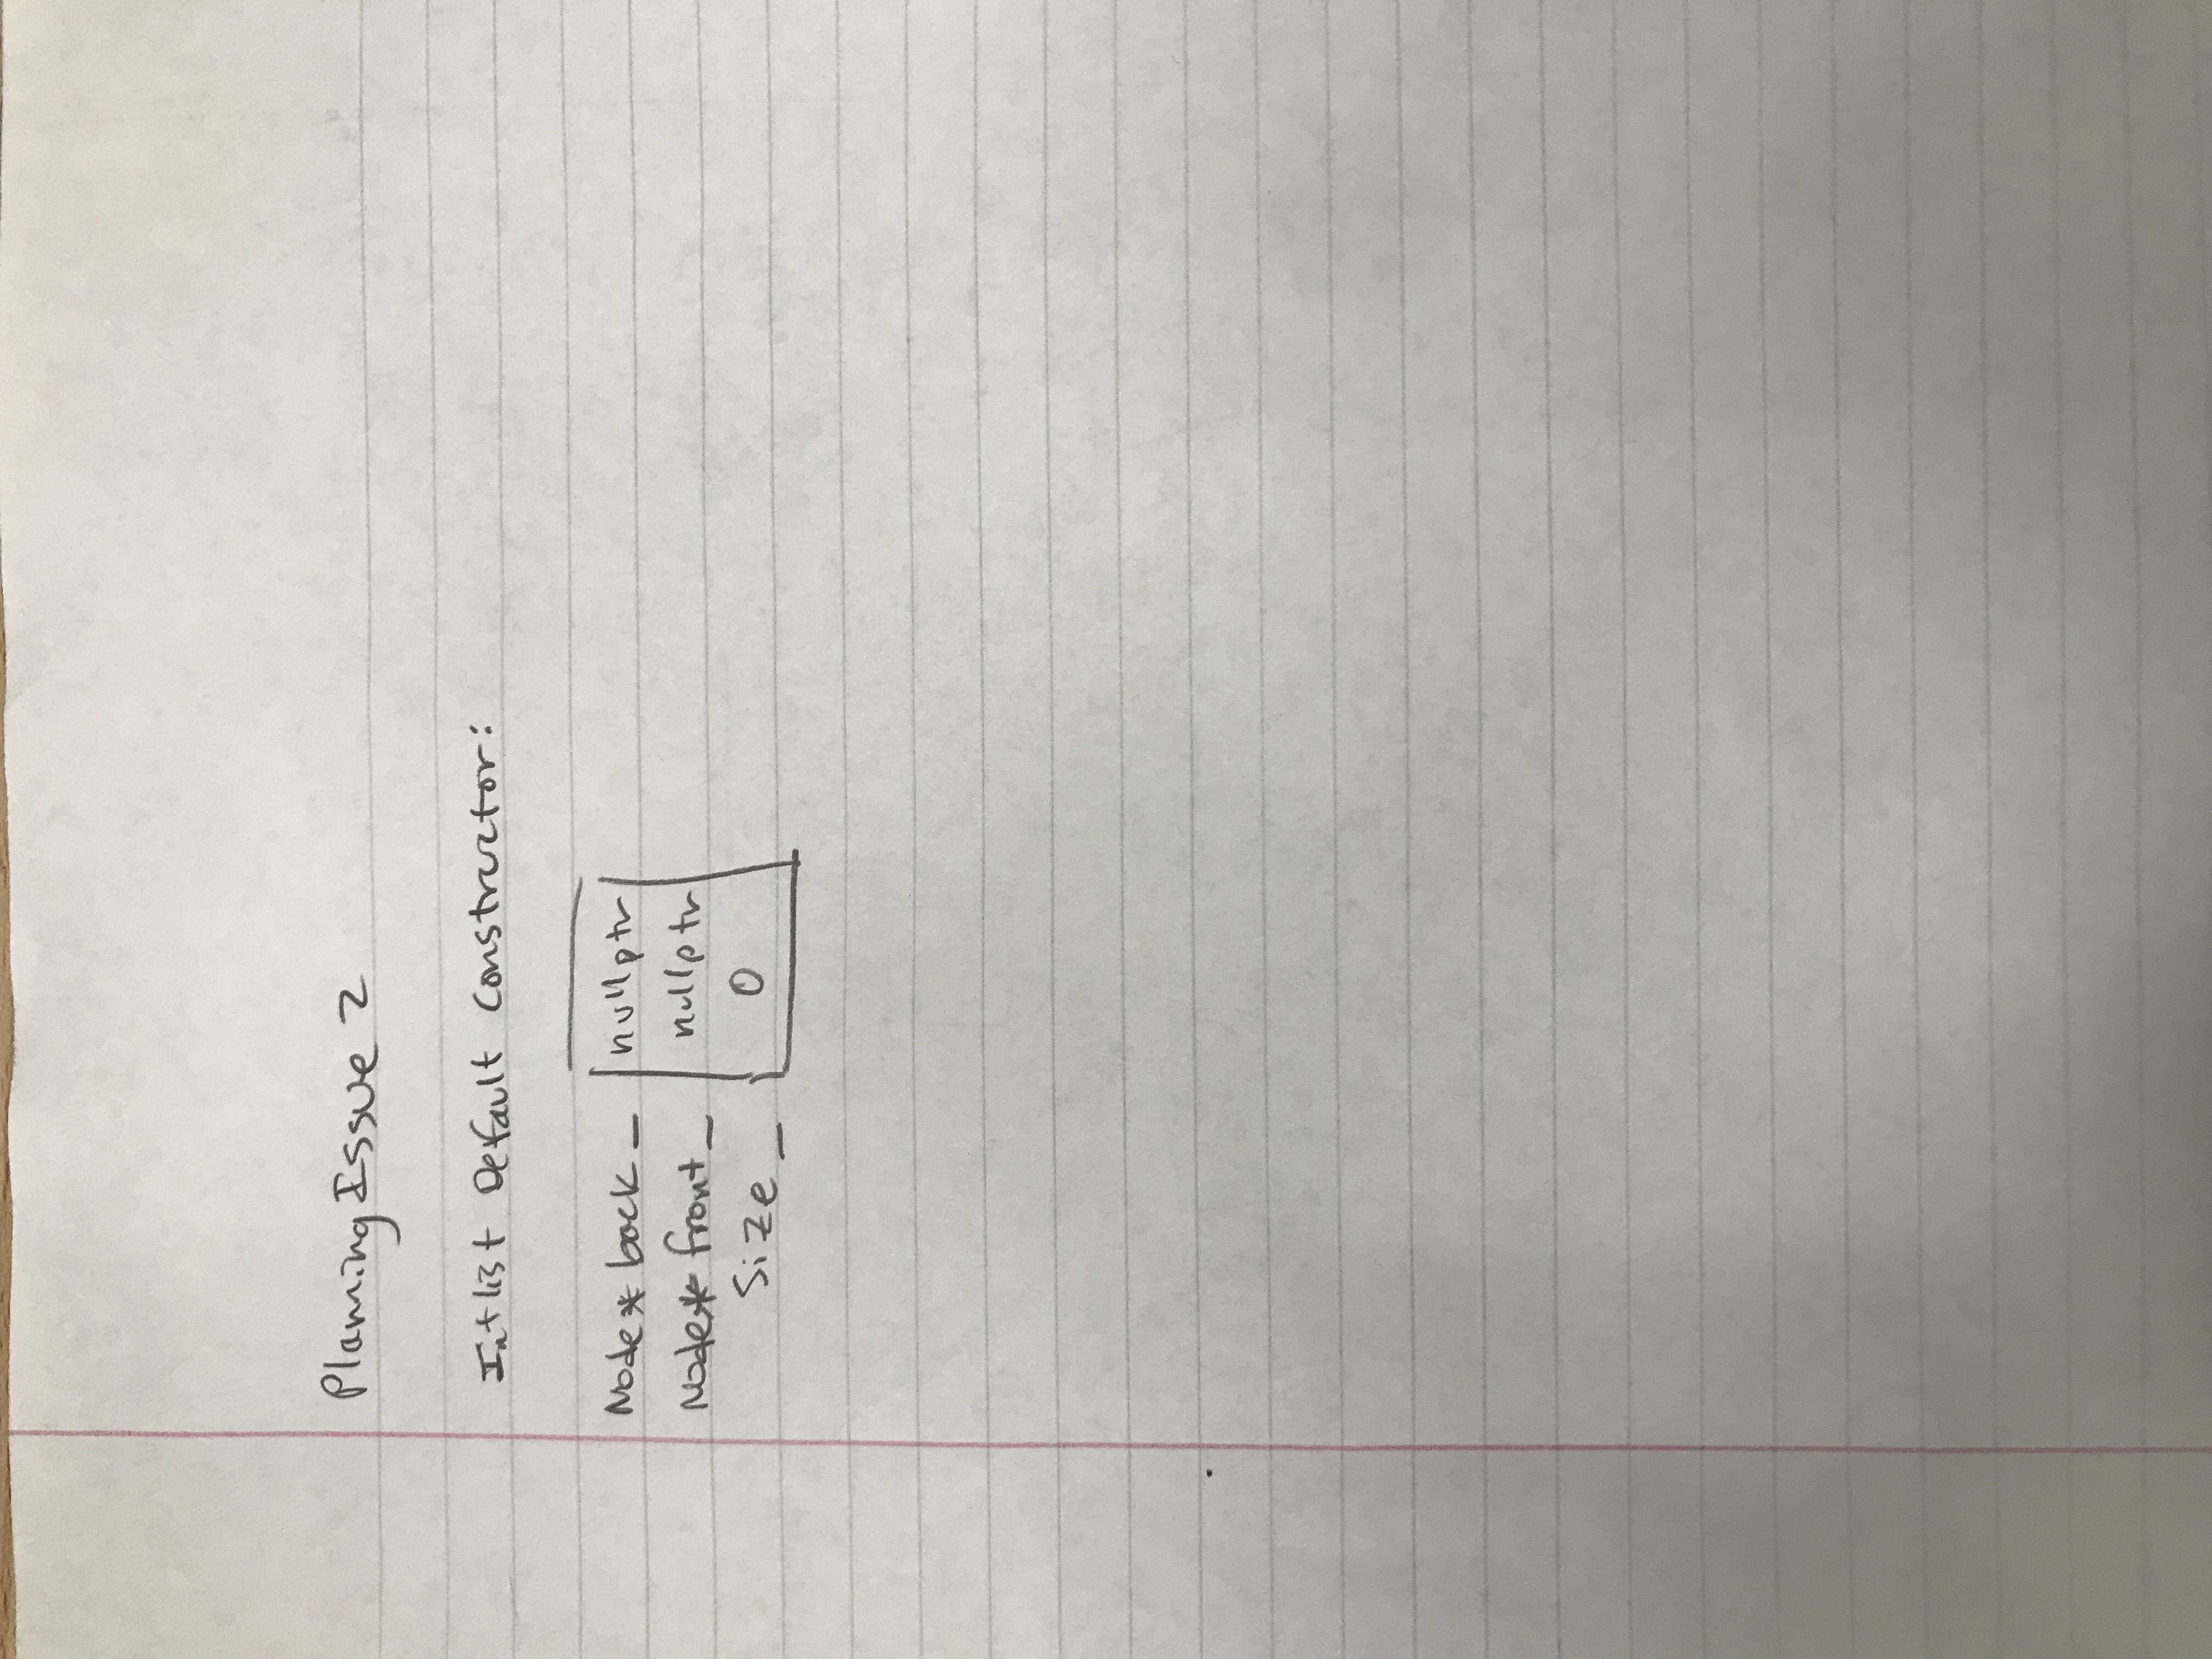 Planning Issue 2
Intlist Default Constructor:
Node* back_ nullptr
Node* front_ nullptr
Size_ 0